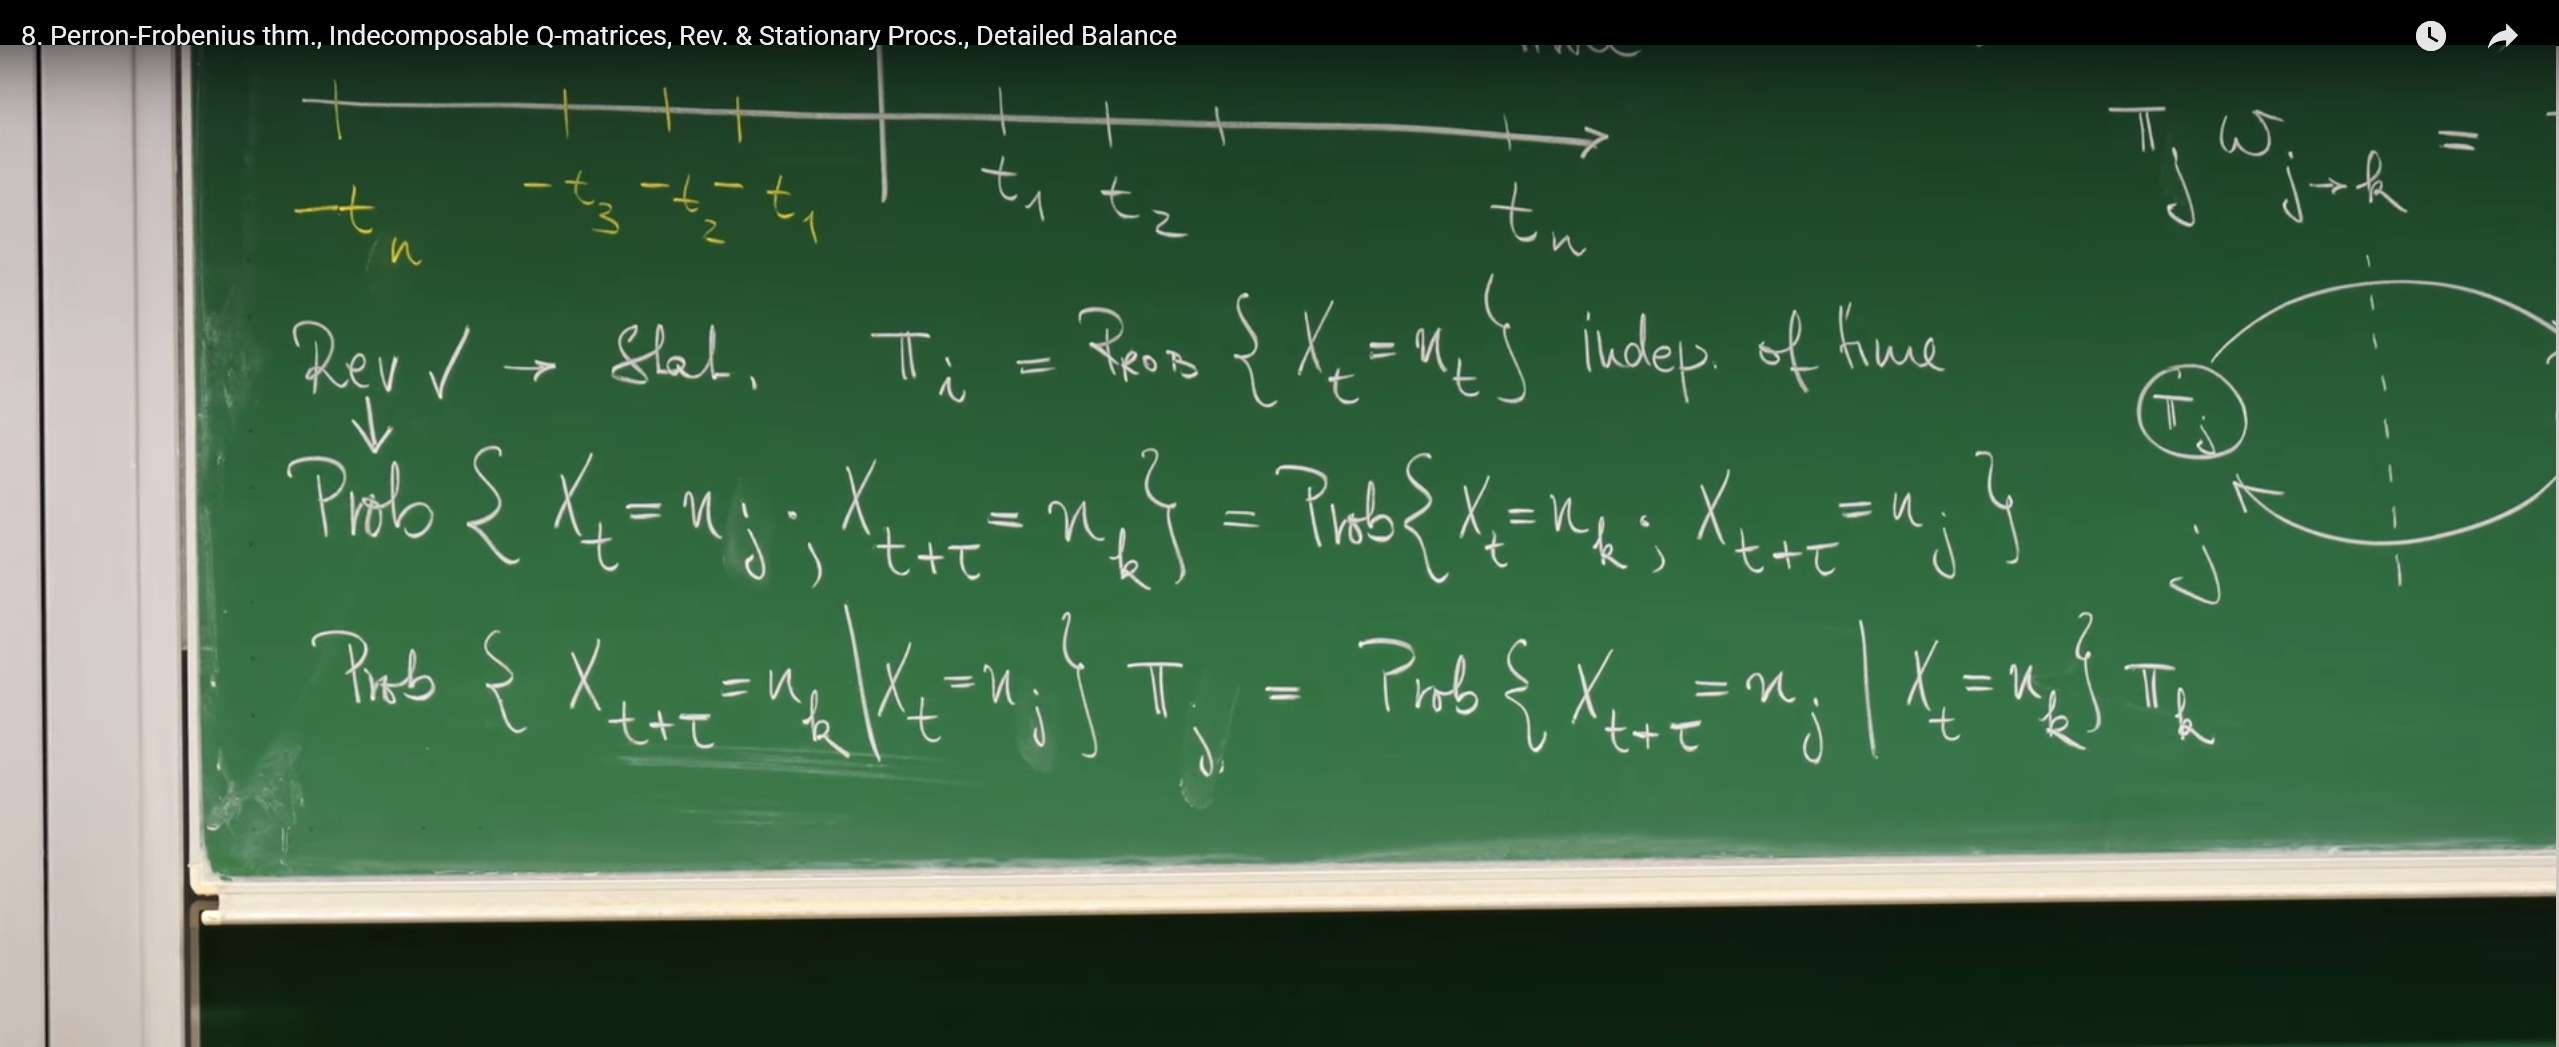 8. Perron-Frobenius thm., Indecomposable Q-matrices, Rev. & Stationary Procs., Detailed Balance
-tₙ -t₃ -t₂ -t₁ t₁ t₂ tₙ
π_j ω_{j→k} =
Rev ✓ → Stat. π_i = Prob { X_t = n_t } indep. of time
π_j
↓
Prob { X_t = n_j ; X_{t+τ} = n_k } = Prob { X_t = n_k ; X_{t+τ} = n_j }
j
Prob { X_{t+τ} = n_k | X_t = n_j } π_j = Prob { X_{t+τ} = n_j | X_t = n_k } π_k